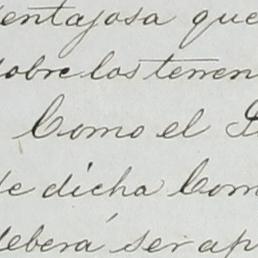 entajosa que
sobre los terren
Como el
de dicha Com
deberá ser ap